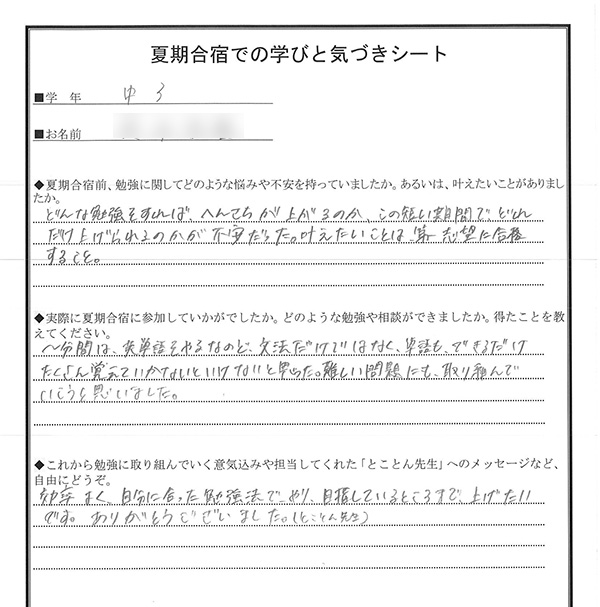 夏期合宿での学びと気づきシート
■学　年　中3
■お名前
◆夏期合宿前、勉強に関してどのような悩みや不安を持っていましたか。あるいは、叶えたいことがありまし
たか。
どんな勉強をすれば、へんさちが上がるのか、この短い期間でどれ
だけ上げられるのかが不安だった。叶えたいことは、第一志望に合格
すること。
◆実際に夏期合宿に参加していかがでしたか。どのような勉強や相談ができましたか。得たことを教
えてください。
〜分間は、英単語をやるなのど、文法だけではなく、単語も、できるだけ
たくさん覚えていかないといけないと思った。難しい問題にも、取り組んで
いこうと思いました。
◆これから勉強に取り組んでいく意気込みや担当してくれた「とことん先生」へのメッセージなど、
自由にどうぞ。
効率よく、自分に合った勉強法でやり、目指しているところまで、上げたい
です。ありがとうございました。(とことん先生)